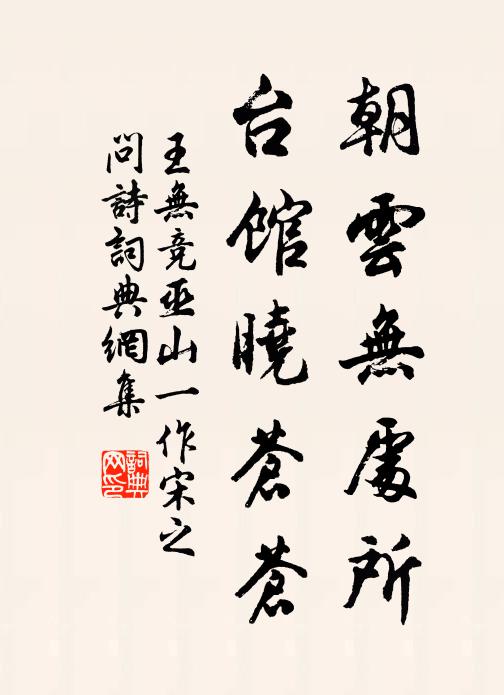 朝雲無處所
台館曉蒼蒼
王無竞巫山一作宋之
问詩詞典網集
詞典
网印